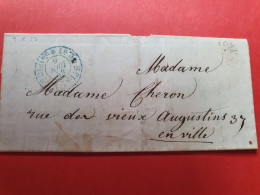 Madame
Madame Cheron
rue des vieux Augustins 37
en ville